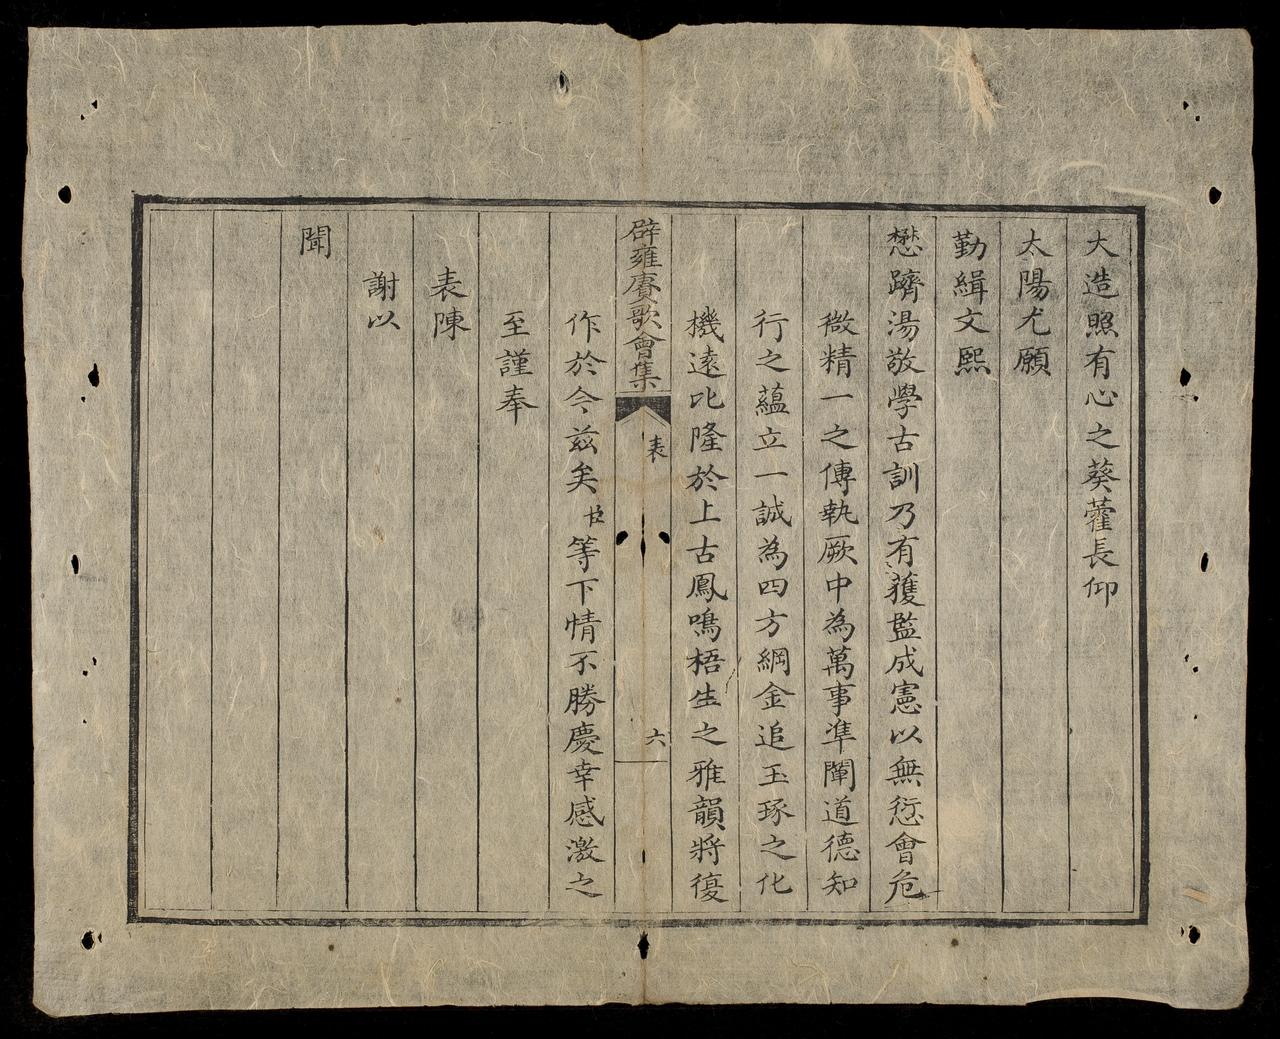 大造照有心之葵藿長仰
太陽尤願
勤緝文熙
懋躋湯敬學古訓乃有獲監成憲以無愆會危
微精一之傳執厥中為萬事準闡道德知
行之蘊立一誠為四方綱金追玉琢之化
機遠比隆於上古鳳鳴梧生之雅韻將復
辟雍賡歌會集
表
六
作於今茲矣臣等下情不勝慶幸感激之
至謹奉
表陳
謝以
聞